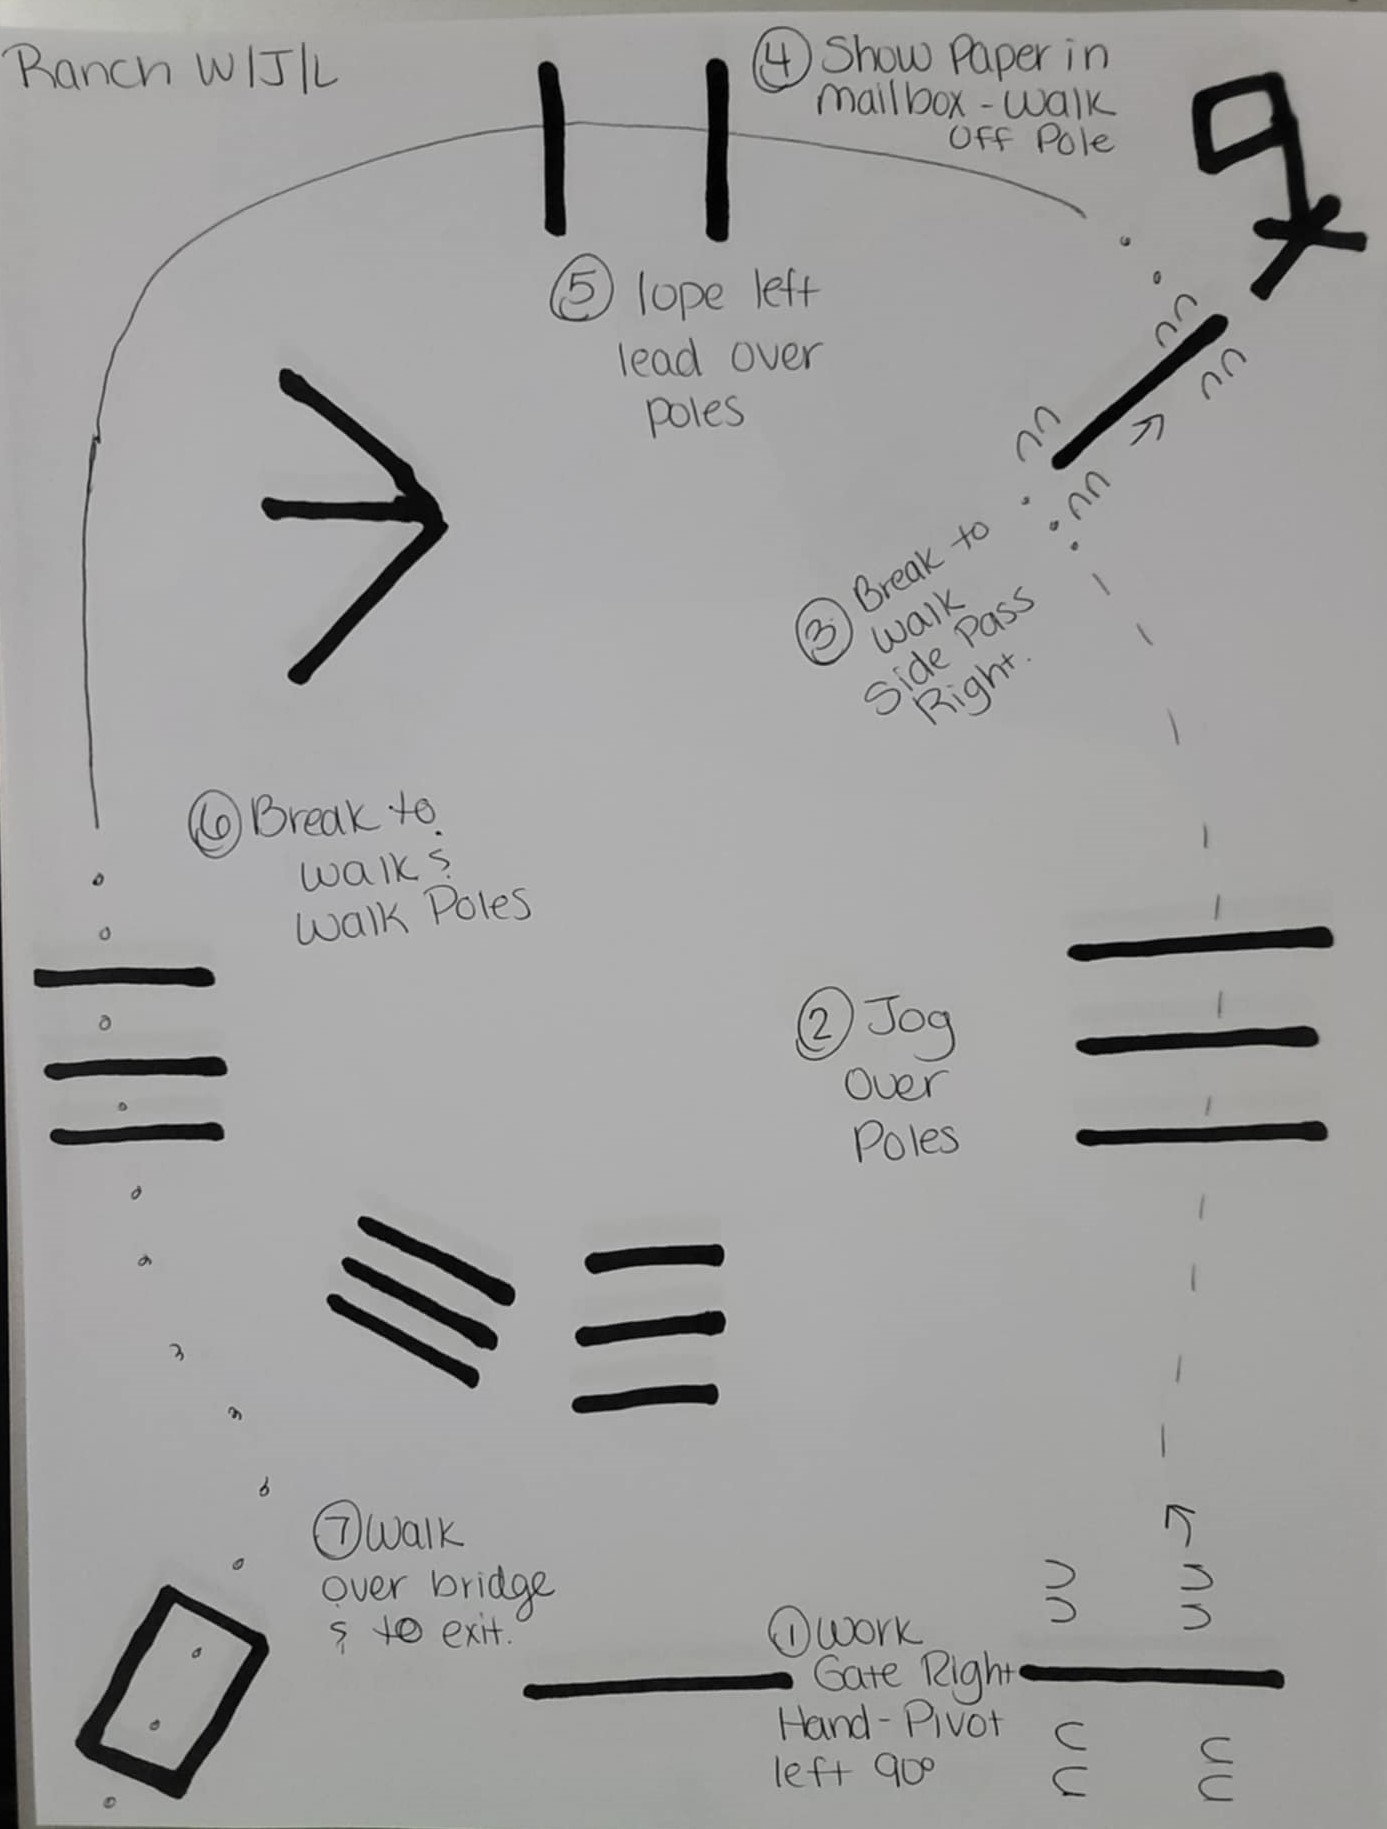 Ranch W/J/L
④ Show Paper in
mailbox - walk
off Pole
⑤ lope left
lead over
poles
③ Break to
walk
Side Pass
Right.
⑥ Break to
walk &
walk Poles
② Jog
Over
Poles
⑦ Walk
over bridge
& to exit.
① Work
Gate Right
Hand - Pivot
left 90°